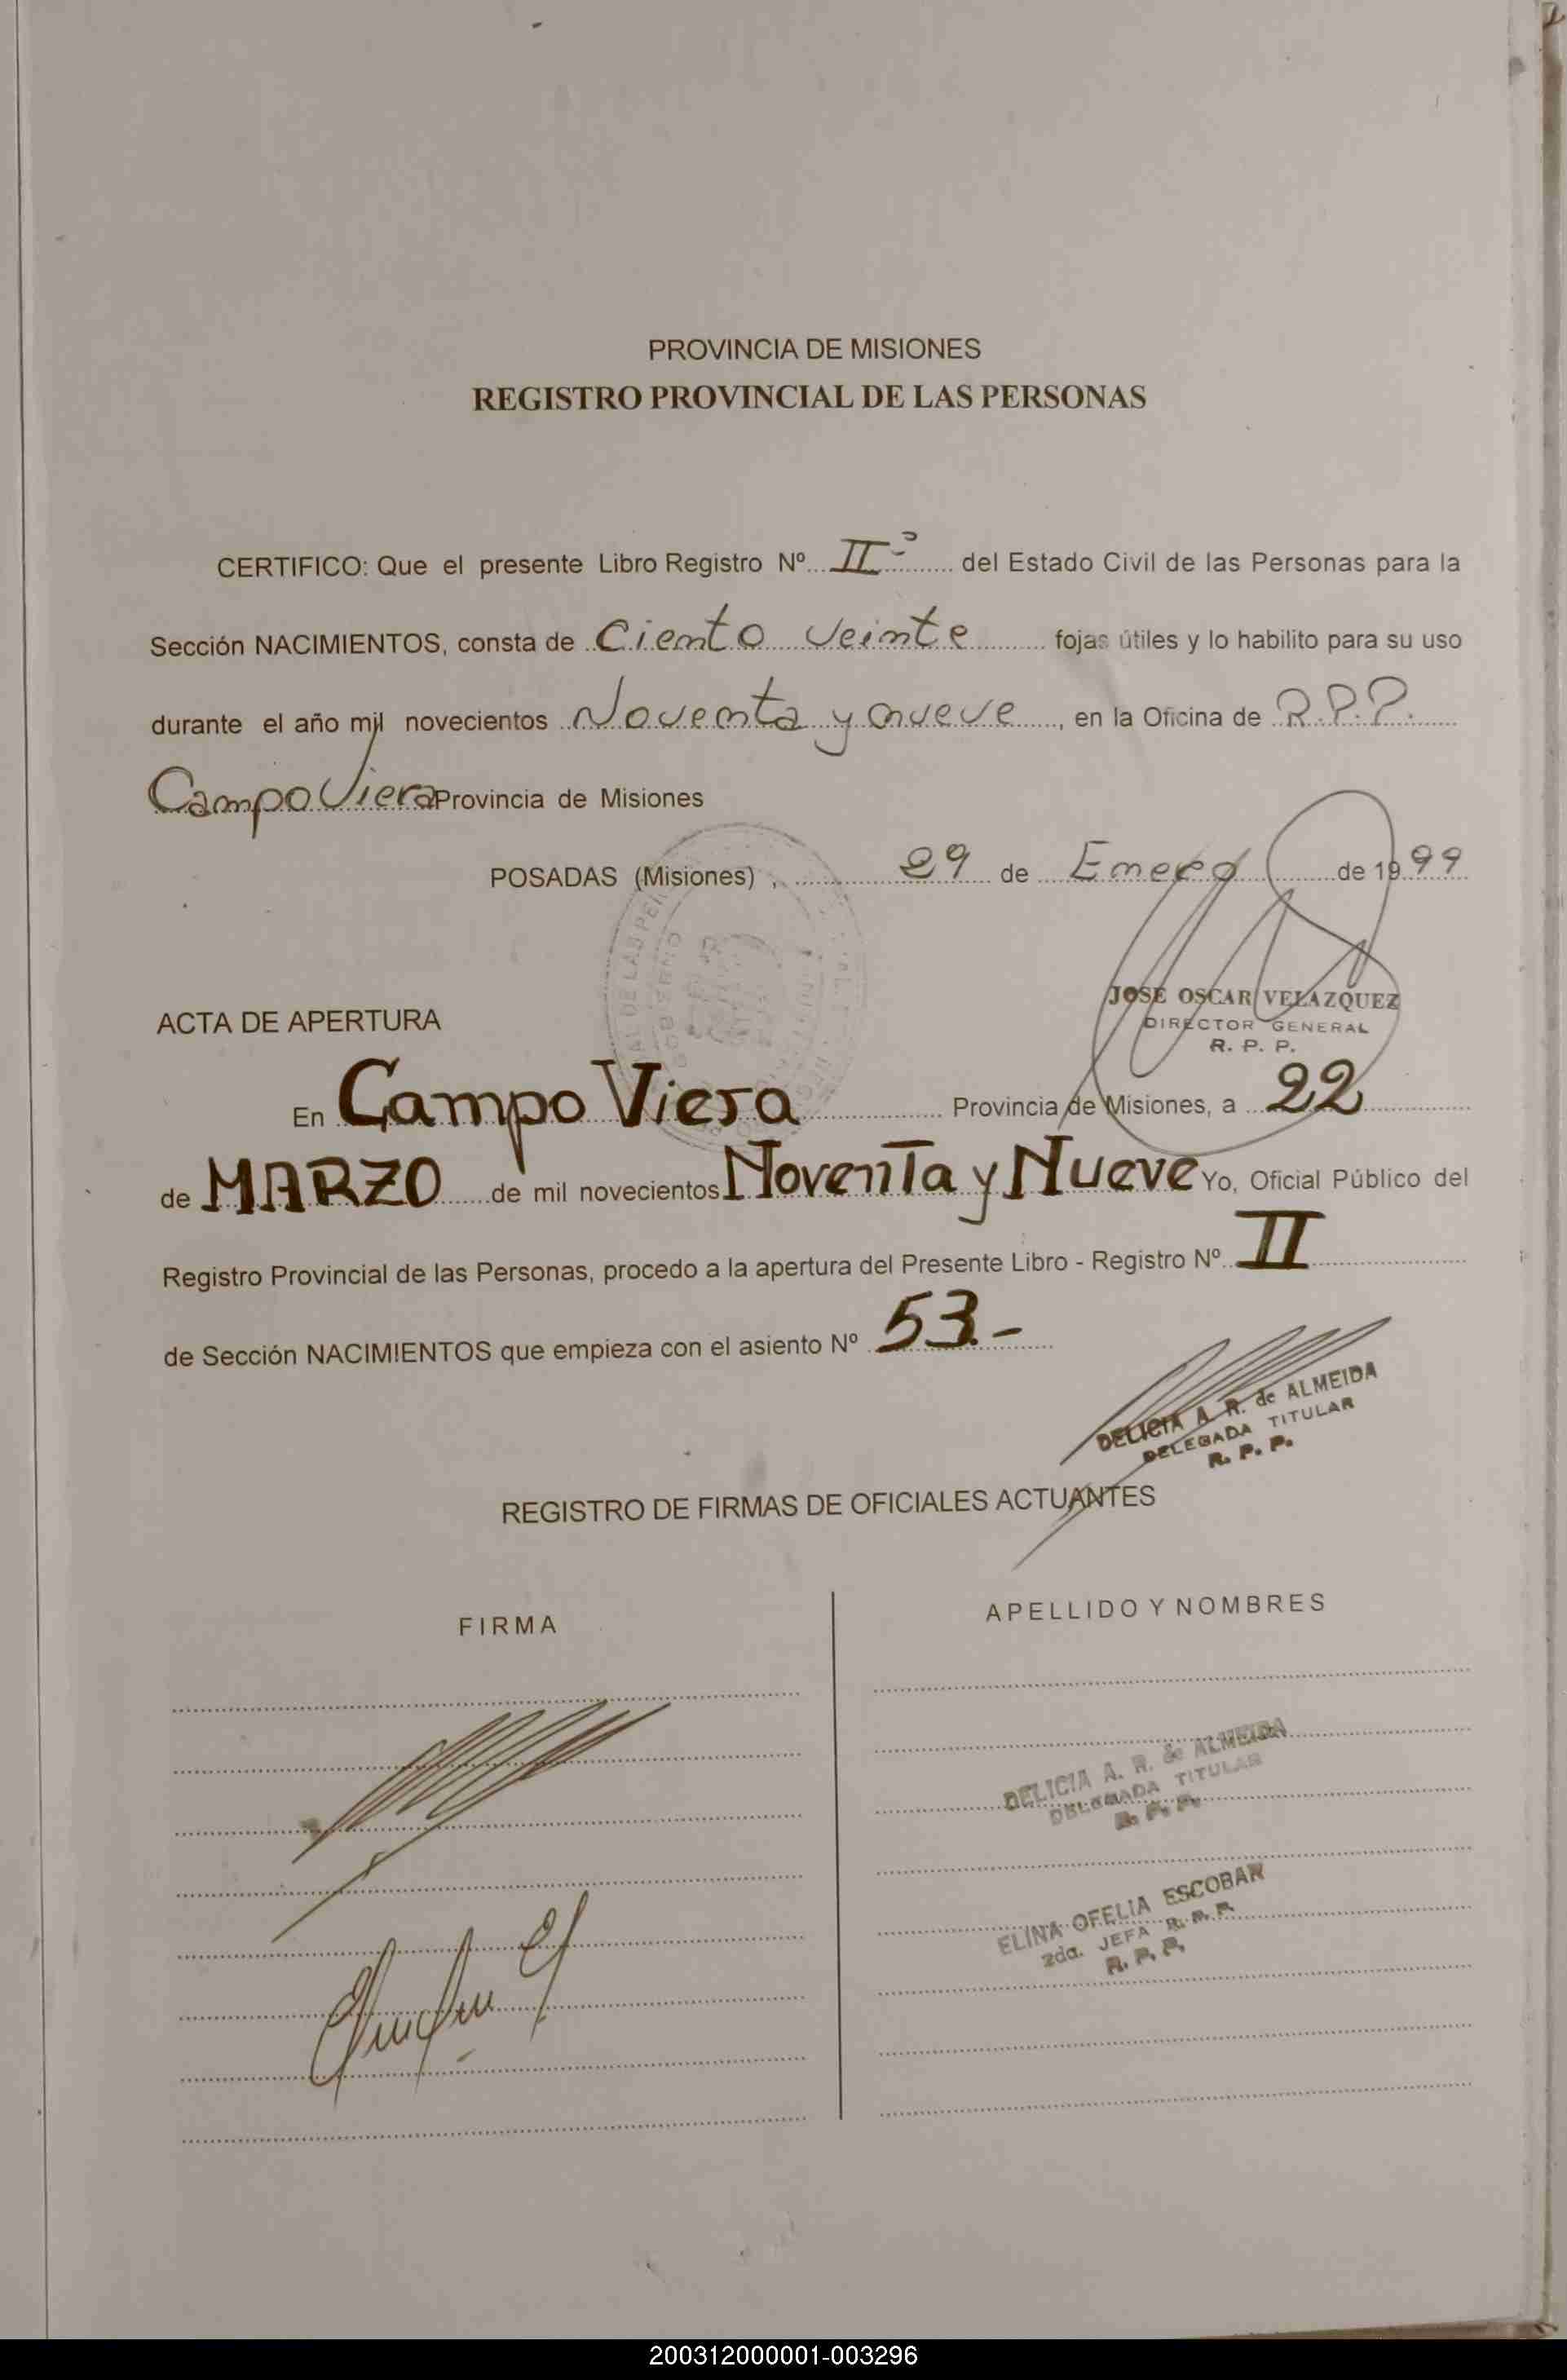 PROVINCIA DE MISIONES
REGISTRO PROVINCIAL DE LAS PERSONAS
CERTIFICO: Que el presente Libro Registro Nº II del Estado Civil de las Personas para la
Sección NACIMIENTOS, consta de Ciento Veinte fojas útiles y lo habilito para su uso
durante el año mil novecientos Noventa y nueve, en la Oficina de R.P.P.
Campo Viera Provincia de Misiones
POSADAS (Misiones), 29 de Enero de 1999
JOSE OSCAR VELAZQUEZ
DIRECTOR GENERAL
R. P. P.
ACTA DE APERTURA
En Campo Viera Provincia de Misiones, a 22
de MARZO de mil novecientos Noventa y Nueve Yo, Oficial Público del
Registro Provincial de las Personas, procedo a la apertura del Presente Libro - Registro Nº II
de Sección NACIMIENTOS que empieza con el asiento Nº 53.-
DELICIA A. R. de ALMEIDA
DELEGADA TITULAR
R. P. P.
REGISTRO DE FIRMAS DE OFICIALES ACTUANTES
FIRMA
APELLIDO Y NOMBRES
DELICIA A. R. de ALMEIDA
DELEGADA TITULAR
R. P. P.
ELINA OFELIA ESCOBAR
2da. JEFA R. P. P.
R. P. P.
200312000001-003296